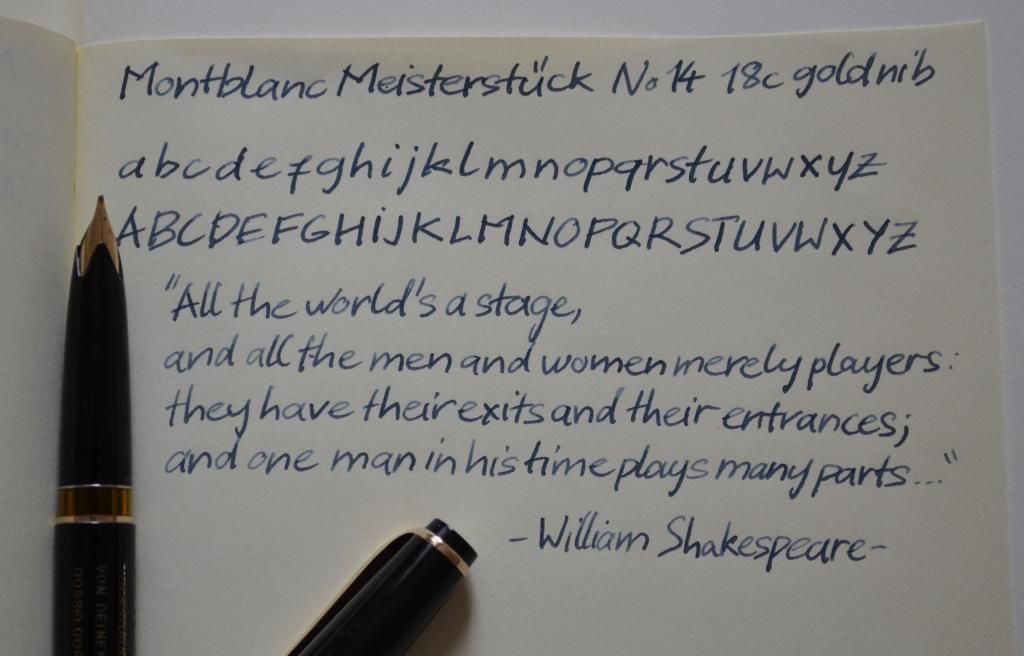 Montblanc Meisterstück No 14 18c goldnib
abcdefghijklmnopqrstuvwxyz
ABCDEFGHIJKLMNOPQRSTUVWXYZ
"All the world's a stage,
and all the men and women merely players:
they have their exits and their entrances;
and one man in his time plays many parts..."
- William Shakespeare -
VON DEINEN